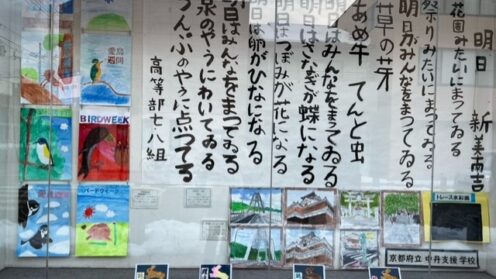 明日
新美南吉
花園みたいにまつてゐる。
祭りみたいにまつてゐる。
明日がみんなをまつてゐる。
草の芽
あめ牛 てんと虫
明日はみんなをまつてゐる。
明日はさなぎが蝶になる
明日はつぼみが花になる
明日は卵がひなになる
明日はみんなをまつてゐる
泉のやうにわいてゐる
らんぷのやうに点つてる
高等部七・八組
愛鳥週間
BIRDWEEK
バードウィーク
トレース水彩画
京都府立 中丹支援学校